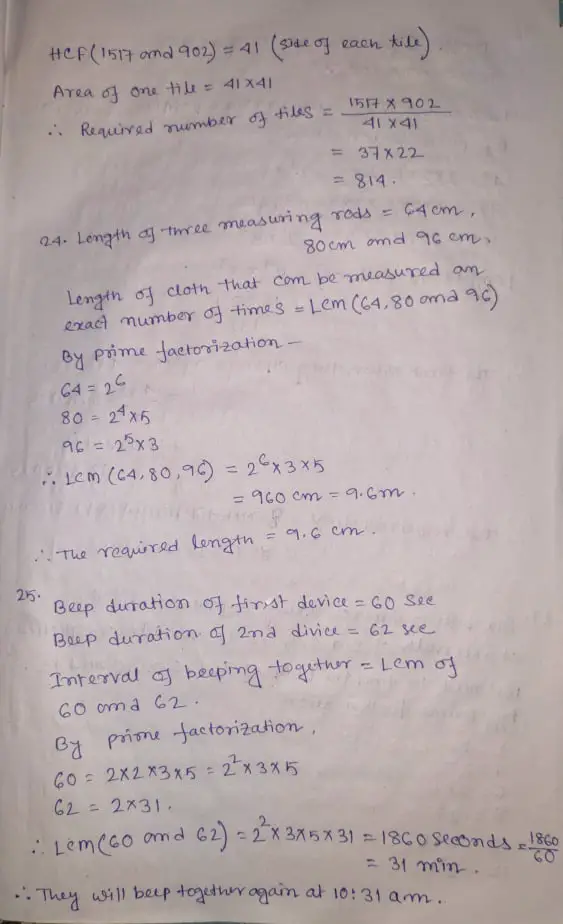 HCF (1517 and 902) = 41 (side of each tile).
Area of one tile = 41 × 41
∴ Required number of tiles = 1517 × 902 / 41 × 41
= 37 × 22
= 814.
24. Length of three measuring rods = 64 cm,
80cm and 96 cm,
Length of cloth that can be measured an
exact number of times = Lcm (64, 80 and 96)
By prime factorization —
64 = 2⁶
80 = 2⁴ × 5
96 = 2⁵ × 3
∴ Lcm (64, 80, 96) = 2⁶ × 3 × 5
= 960 cm = 9.6 m.
∴ The required length = 9.6 cm.
25. Beep duration of first device = 60 sec
Beep duration of 2nd divice = 62 sec
Interval of beeping together = Lcm of
60 and 62.
By prime factorization,
60 = 2 × 2 × 3 × 5 = 2² × 3 × 5
62 = 2 × 31.
∴ Lcm (60 and 62) = 2² × 3 × 5 × 31 = 1860 seconds = 1860/60
= 31 min.
∴ They will beep together again at 10:31 am.